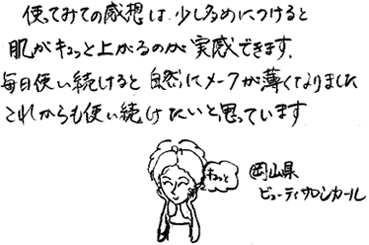 使ってみての感想は、少し多めにつけると
肌がキュッと上がるのが実感できます。
毎日使い続けると自然にメークが薄くなりました
これからも使い続けたいと思っています
キュッと
岡山県
ビューティサロンカール